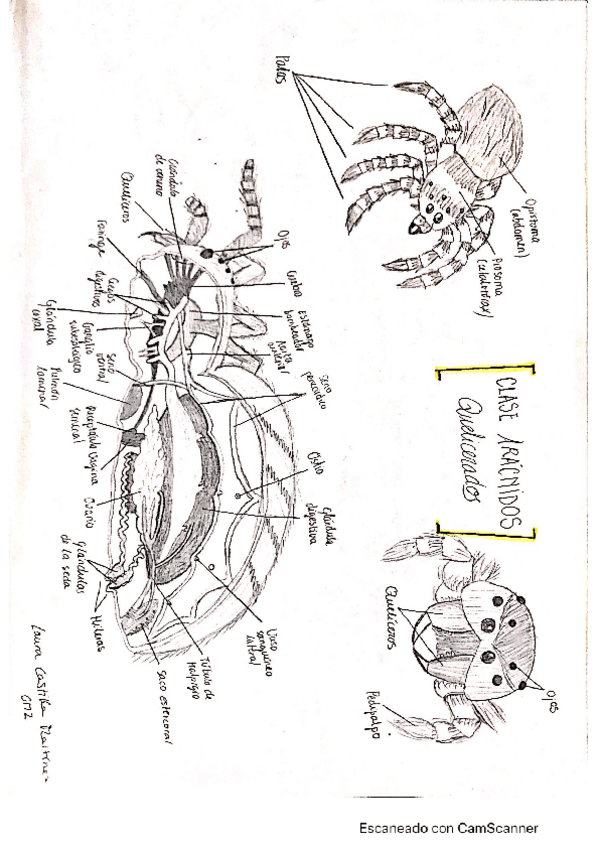 CLASE ARÁCNIDOS
Quelicerados
Patas
Opistosoma
(abdomen)
Prosoma
(cefalotórax)
Ojos
Quelíceros
Pedipalpo
Ojos
Cerebro
Estómago
bombeador
Aorta
anterior
Seno
pericárdico
Ostio
Glándula
digestiva
Vaso
sanguíneo
lateral
Túbulo de
Malpigio
Saco estercoral
Glándula
de veneno
Quelíceros
Faringe
Ciegos
digestivos
Glándula
coxal
Ganglio
subesofágico
Seno
ventral
Pulmón
laminar
Receptáculo
seminal
Vagina
Ovario
Glándulas
de la seda
Hileras
Laura Castilla Martínez
GM2
Escaneado con CamScanner